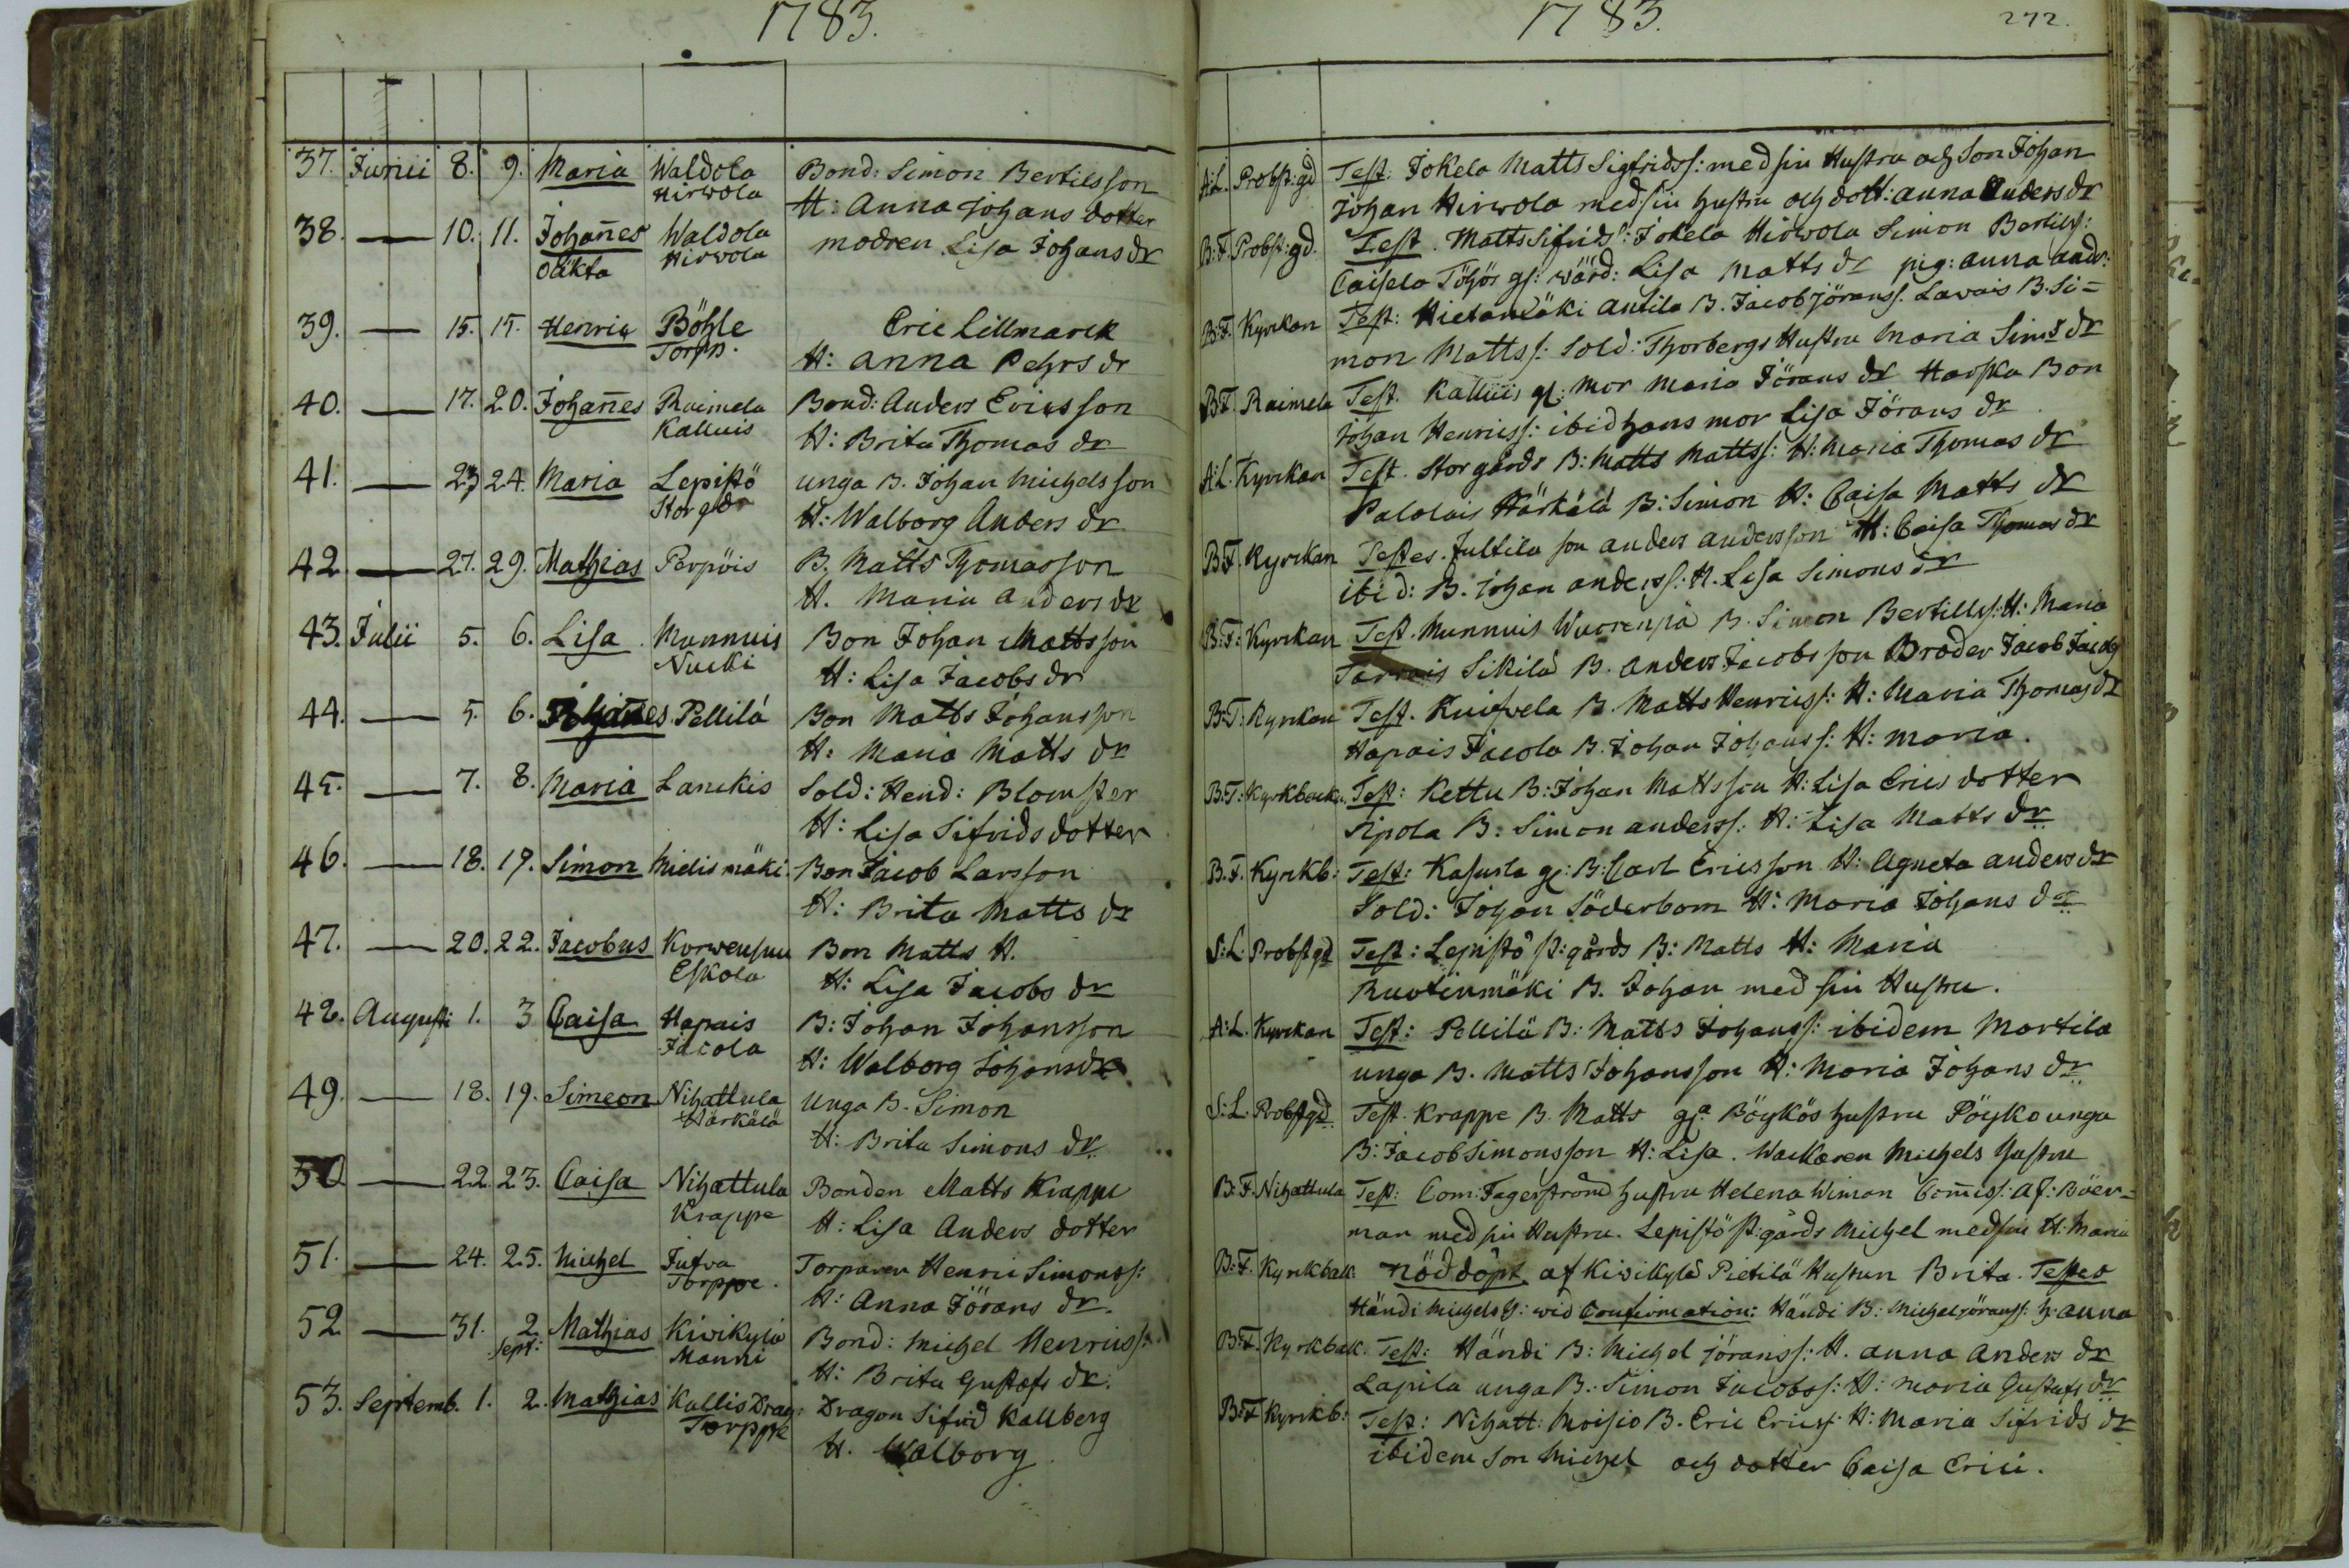 1783.
37. Junii 8. 9. Maria Waldola Bond: Simon Bertilsson
Hirwola H: Anna Johans dotter
38. — 10. 11. Johañes Waldola modren Lisa Johans dr
oäkta Hirwola
39. — 15. 15. Henric Böhle Eric Lillmarck
Torpp. H: Anna Pehrs dr
40. — 17. 20. Johañes Raimela Bond: Anders Ericsson
Kalluis H: Brita Thomas dr
41. — 23 24. Maria Lepistö unga B. Johan Michelsson
Storgdr H: Walborg Anders dr
42. — 27. 29. Mathias Perpöis B. Matts Thomasson
H. Maria Anders dr
43. Julii 5. 6. Lisa Munnuis Bon Johan Mattsson
Nucki H: Lisa Jacobs dr
44. — 5. 6. Johañes Pellilä Bon Matts Johansson
H: Maria Matts dr
45. — 7. 8. Maria Lanckis Sold: Hend: Blomster
H: Lisa Sifrids dotter
46. — 18. 19. Simon Mielismäki Bon Jacob Larsson
H: Brita Matts dr
47. — 20. 22. Jacobus Korwensuu Bon Matts H.
Eskola H: Lisa Jacobs dr
48. Augusti 1. 3 Caisa Hapais B: Johan Johansson
Jacola H: Walborg Johans dr
49. — 18. 19. Simeon Nihattula unga B. Simon
Härkälä H: Brita Simons dr
50 — 22. 23. Caisa Nihattula Bonden Matts Krappe
Krappe H: Lisa Anders dotter
51. — 24. 25. Michel Jufva Torparen Henric Simonss:
Torppe. H: Anna Jörans dr.
52 — 31. 2 Mathias Kivikylä Bond: Michel Henricss:
Sept: Manni H: Brita Gustafs dr.
53. Septemb. 1. 2. Mathias Kallis Drag: Dragon Sifrid Kallberg
Torppe H. Walborg
1783.
272.
A:L. Probst:gd Test: Jokela Matts Sigfridss: med sin Hustru och son Johan
Johan Hirwola med sin hustru och dott: Anna Anders dr
B:F. Probst:gd. Test. Matts Sifrids: Jokela Hirwola Simon Bertilss:
Caisela Töhjös gs: wärd: Lisa Matts dr pig: Anna Andr:
B:F. Kyrckan Test: Hietamäki Antila B. Jacob Jöranss. Lavais B. Si=
mon Mattss: Sold: Thorbergs Hustru Maria Sims dr
B:F. Raimela Test. Kalluis gl: mor Maria Jörans dr Harska Bon
Johan Henricss: ibid hans mor Lisa Jörans dr
A:L. Kyrckan Test. Storgårds B: Matts Mattss: H: Maria Thomas dr
Palolais Härkälä B: Simon H: Caisa Matts dr
B:F. Kyrckan Testes. Jultila son Anders Andersson H: Caisa Thomas dr
ibid: B. Johan Anderss: H. Lisa Simons dr
B:F: Kyrckan Test. Munnuis Wuorenpä B. Simon Bertillss: H: Maria
Tarrais Sikilä B. Anders Jacobsson Broder Jacob Jacobs
B:F: Kyrckan Test. Knifvela B. Matts Henricss: H: Maria Thomas dr
Hapais Jacola B. Johan Johanss: H: Maria.
B:F: Kyrkback. Test: Kettu B: Johan Mattsson H: Lisa Erics dotter
Sipola B: Simon Anderss: H: Lisa Matts dr
B.F. Kyrckb: Test: Kasurla gl: B: Carl Ericsson H: Agneta Anders dr
Sold: Johan Söderbom H: Maria Johans dr
S:L. Probst gd Test: Lepistö st: gårds B: Matts H: Maria
Ruotinmäki B. Johan med sin Hustru.
A:L. Kyrckan Test: Pellilä B: Matts Johanss: ibidem Martila
unga B. Matts Johansson H: Maria Johans dr
S:L. Probst gd. Test. Krappe B. Matts gla Böykös hustru Pöyko unga
B: Jacob Simonsson H: Lisa. Wackaren Michels hustru
B:F. Nihattula Test: Com: Fagerström hustru Helena Wiman Com̃iss: Af: Böer=
man med sin Hustru. Lepistö st: gårds Michel med sin H: Maria
B:F. Kyrckback Nöddöpt af Kivikylä Pietilä Hustrun Brita. Testes
Händi Michels h: wid Confirmation: Händi B: Michel Jöranss: h: Anna
B:F. Kyrckback. Test: Händi B: Michel Jöranss: H. Anna Anders dr
Lapila unga B: Simon Jacobss: H: Maria Gustafs dr
B:F Kyrckb: Test: Nihatt: Moisio B. Eric Ericss: H: Maria Sifrids dr
ibidem son Michel och dotter Caisa Erici.